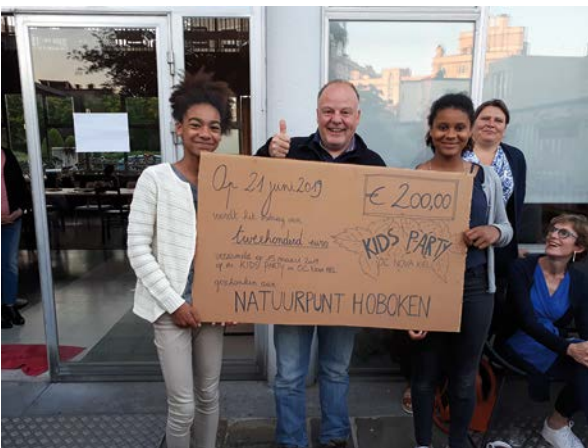 Op 21 juni 2019
€ 200,00
wordt het bedrag van
tweehonderd euro
verzameld op 15 maart 2019
op de KIDS PARTY in OC Nova Kiel
KIDS PARTY
OC NOVA KIEL
geschonken aan
NATUURPUNT HOBOKEN